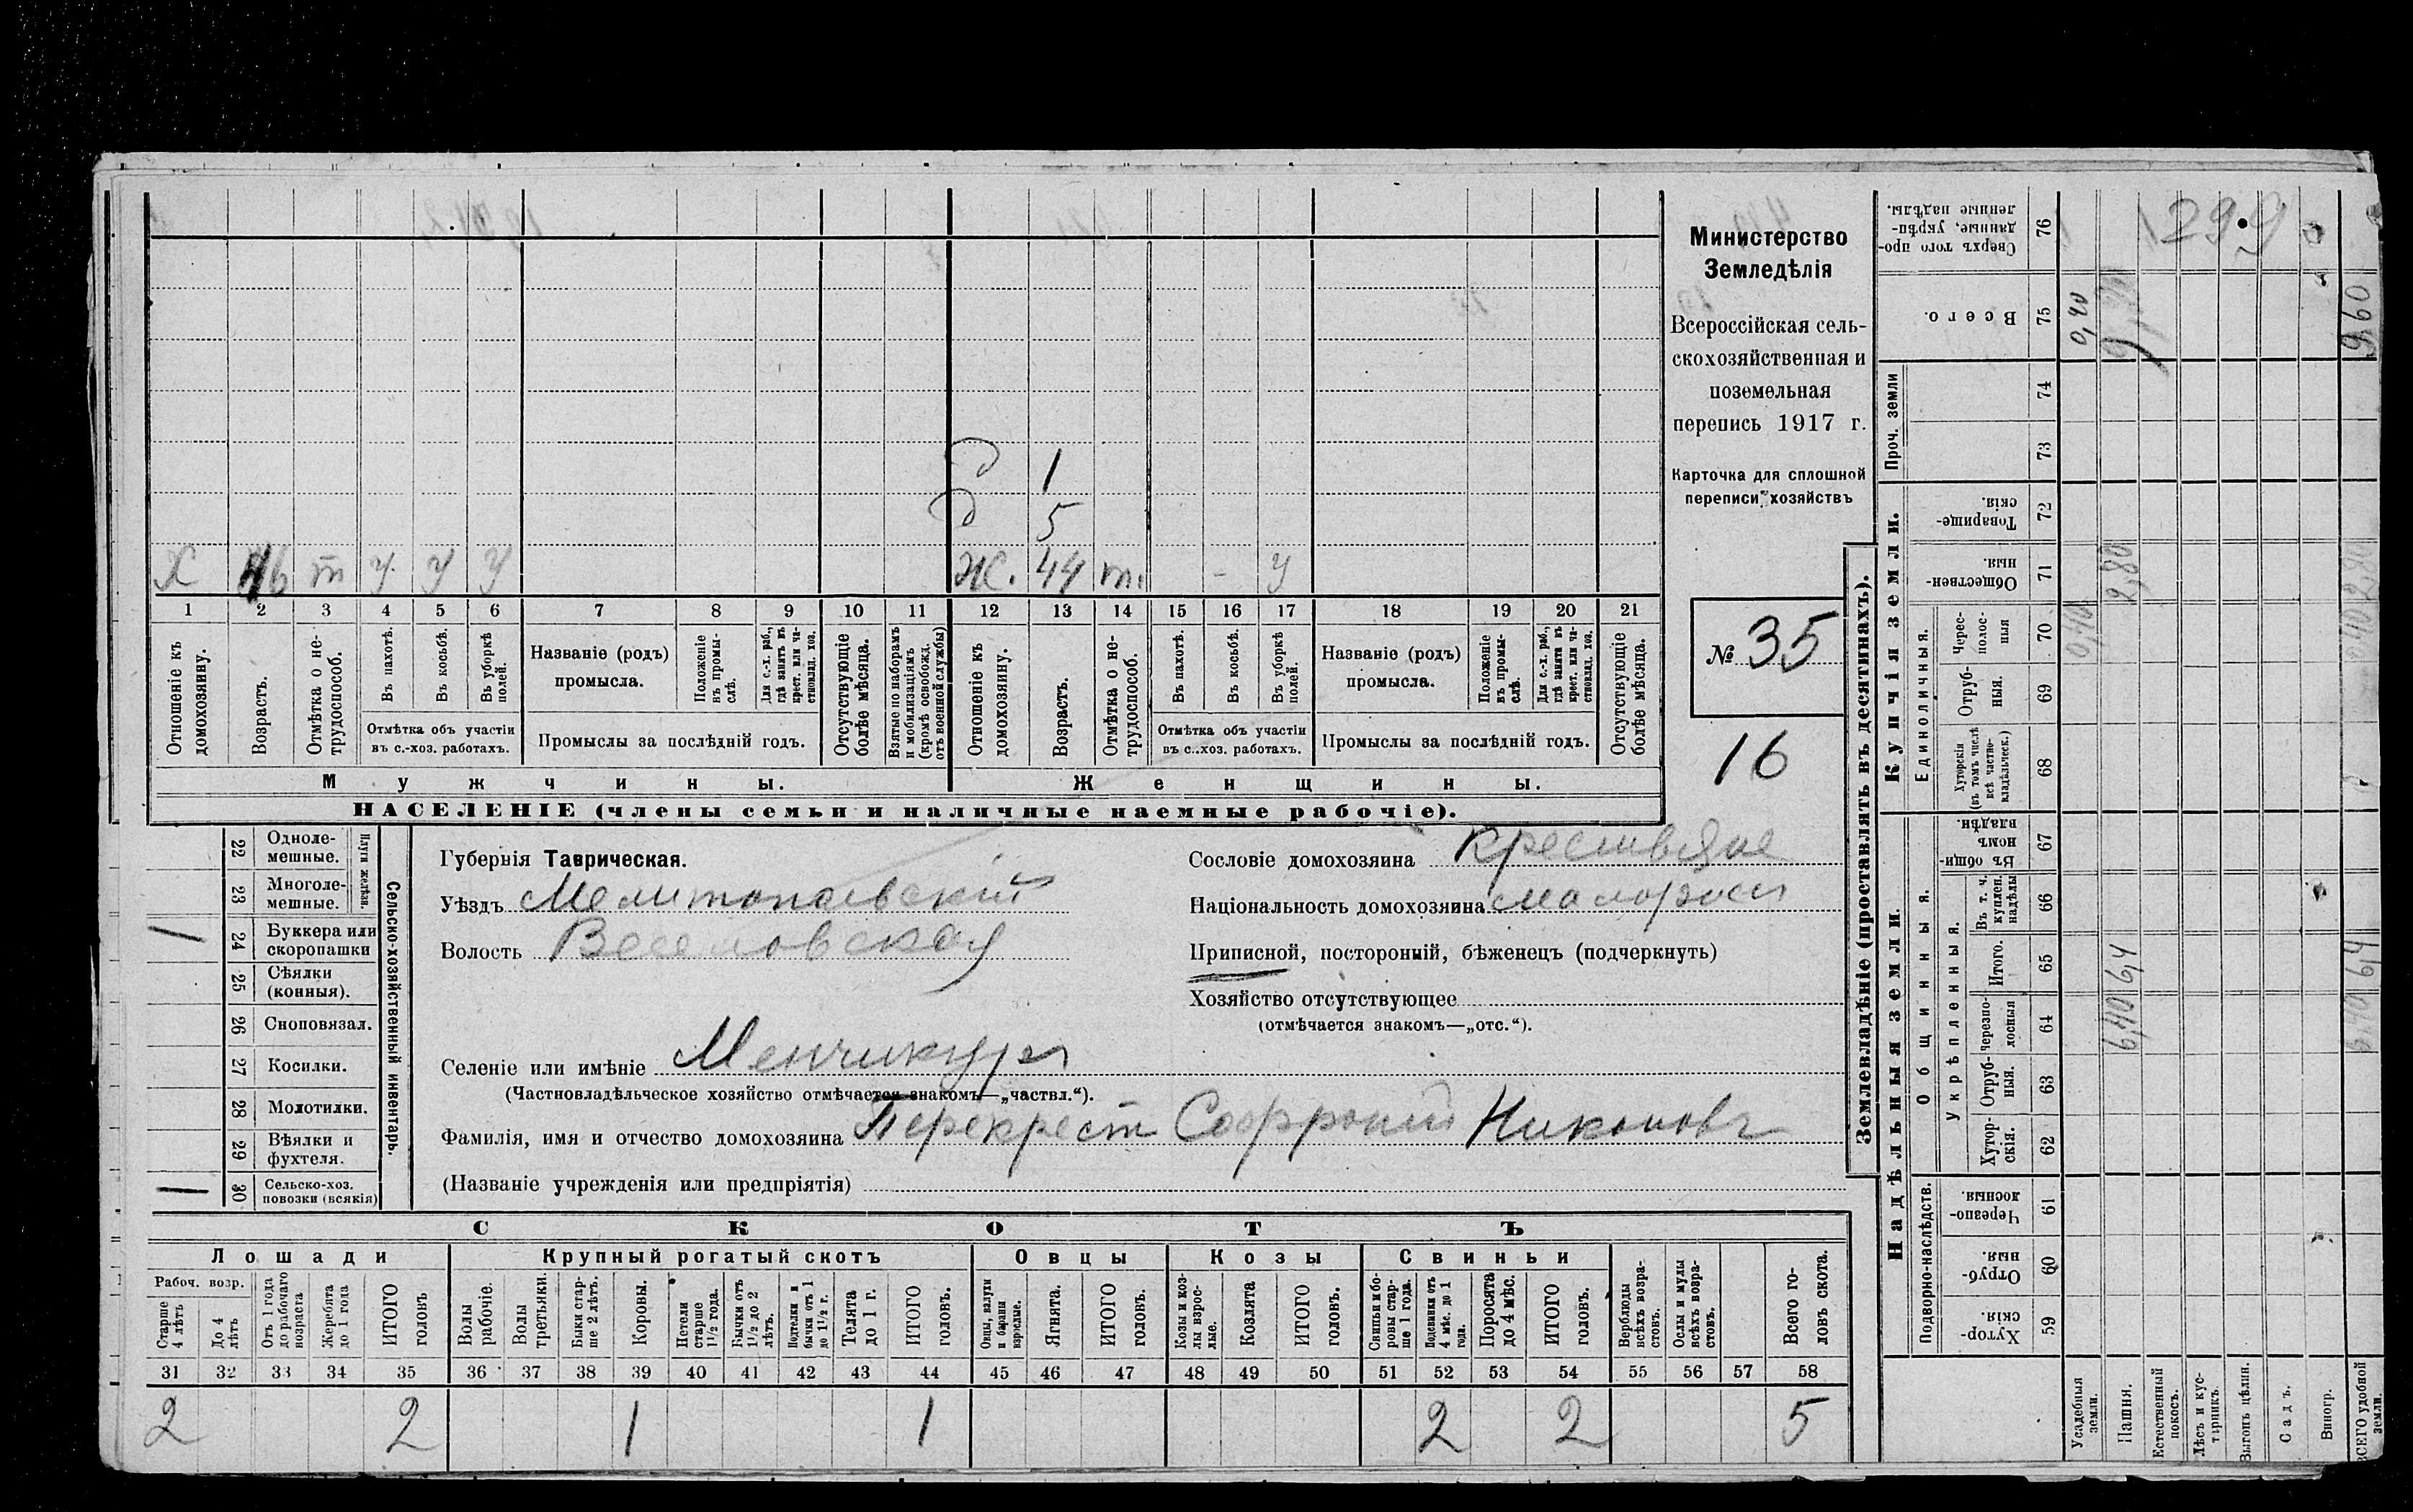 Министерство
Земледѣлія
Всероссійская сель-
скохозяйственная и
поземельная
перепись 1917 г.
Карточка для сплошной
переписи хозяйствъ
№ 35
16
д 1
д 5
Х 46 т у у у Ж. 44 т. - у
1 2 3 4 5 6 7 8 9 10 11 12 13 14 15 16 17 18 19 20 21
Отношеніе къ домохозяину.
Возрастъ.
Отмѣтка о не-трудоспособ.
Въ пахотѣ.
Въ косьбѣ.
Въ уборкѣ полей.
Отмѣтка объ участіи въ с.-хоз. работахъ.
Названіе (родъ) промысла.
Положеніе въ промы-слѣ.
Для с.-х. раб., гдѣ занятъ въ крест. или ча-стновлад. хоз.
Промыслы за послѣдній годъ.
Отсутствующіе болѣе мѣсяца.
Взятые по наборамъ и мобилизаціямъ (кромѣ освобожд. отъ военной службы)
Отношеніе къ домохозяину.
Возрастъ.
Отмѣтка о не-трудоспособ.
Въ пахотѣ.
Въ косьбѣ.
Въ уборкѣ полей.
Отмѣтка объ участіи въ с..хоз. работахъ.
Названіе (родъ) промысла.
Положеніе въ промы-слѣ.
Для с.-х. раб., гдѣ занята въ крест. или ча-стновлад. хоз.
Промыслы за послѣдній годъ.
Отсутствующіе болѣе мѣсяца.
Мужчины. Женщины.
НАСЕЛЕНІЕ (члены семьи и наличные наемные рабочіе).
22 Одноле-мешные.
23 Многоле-мешные.
Плуги желѣзн.
24 Буккера или скоропашки
25 Сѣялки (конныя).
26 Сноповязал.
27 Косилки.
28 Молотилки.
29 Вѣялки и фухтеля.
30 Сельско-хоз. повозки (всякія)
Сельско-хозяйственный инвентарь.
Губернія Таврическая.
Уѣздъ Мелитопольскій
Волость Веселовская
Сословіе домохозяина Крестьяне
Національность домохозяина малоросы
Приписной, посторонній, бѣженецъ (подчеркнуть)
Хозяйство отсутствующее
(отмѣчается знакомъ—„отс.“).
Селеніе или имѣніе Менчикуры
(Частновладѣльческое хозяйство отмѣчается знакомъ—„частвл.“).
Фамилія, имя и отчество домохозяина Перекрест Софроній Никоновъ
(Названіе учрежденія или предпріятія)
СКОТЪ
Лошади Крупный рогатый скотъ Овцы Козы Свиньи
Рабоч. возр.
Старше 4 лѣтъ
До 4 лѣтъ
Отъ 1 года до рабочаго возраста
Жеребята до 1 года
ИТОГО головъ
Волы рабочіе.
Волы третьяки.
Быки стар-ше 2 лѣтъ.
Коровы.
Нетели старше 1½ года.
Бычки отъ 1½ до 2 лѣтъ.
Подтелки и бычки отъ 1 до 1½ г.
Телята до 1 г.
ИТОГО головъ.
Овцы, валухи и бараны взрослые.
Ягнята.
ИТОГО головъ.
Козы и коз-лы взрос-лые.
Козлята
ИТОГО головъ.
Свиньи и бо-ровы стар-ше 1 года.
Подсвинки отъ 4 мѣс. до 1 года.
Поросята до 4 мѣс.
ИТОГО головъ.
Верблюды всѣхъ возра-стовъ.
Ослы и мулы всѣхъ возра-стовъ.
Всего го-ловъ скота.
31 32 33 34 35 36 37 38 39 40 41 42 43 44 45 46 47 48 49 50 51 52 53 54 55 56 57 58
2 2 1 1 2 2 5
Землевладѣніе (проставлять въ десятинахъ).
Надѣльныя земли.
Купчія земли.
Проч. земли
Подворно-наслѣдств.
Общинныя.
Укрѣпленныя.
Единоличныя.
59 Хутор-скія.
60 Отруб-ныя.
61 Черезпо-лосныя.
62 Хутор-скія.
63 Отруб-ныя.
64 Черезпо-лосныя
65 Итого.
66 Въ т. ч. куплен. надѣлы
67 Въ общи-номъ владѣн.
68 Хуторскія (въ томъ числѣ всѣ частно-владѣльческ.)
69 Отруб-ныя.
70 Черес-полос-ныя
71 Обществен-ныя.
72 Товарище-скія.
73
74
75 Всего.
76 Сверхъ того про-данные, укрѣп-ленные надѣлы.
Усадебныя земли. 0,40 0,40
Пашня. 6,40 6,4 2,80
Естественный покосъ.
Лѣсъ и кус-тарникъ.
Выгонъ цѣлин.
Садъ.
Виногр.
ВСЕГО удобной земли. 6,40 6,4 9,60
299